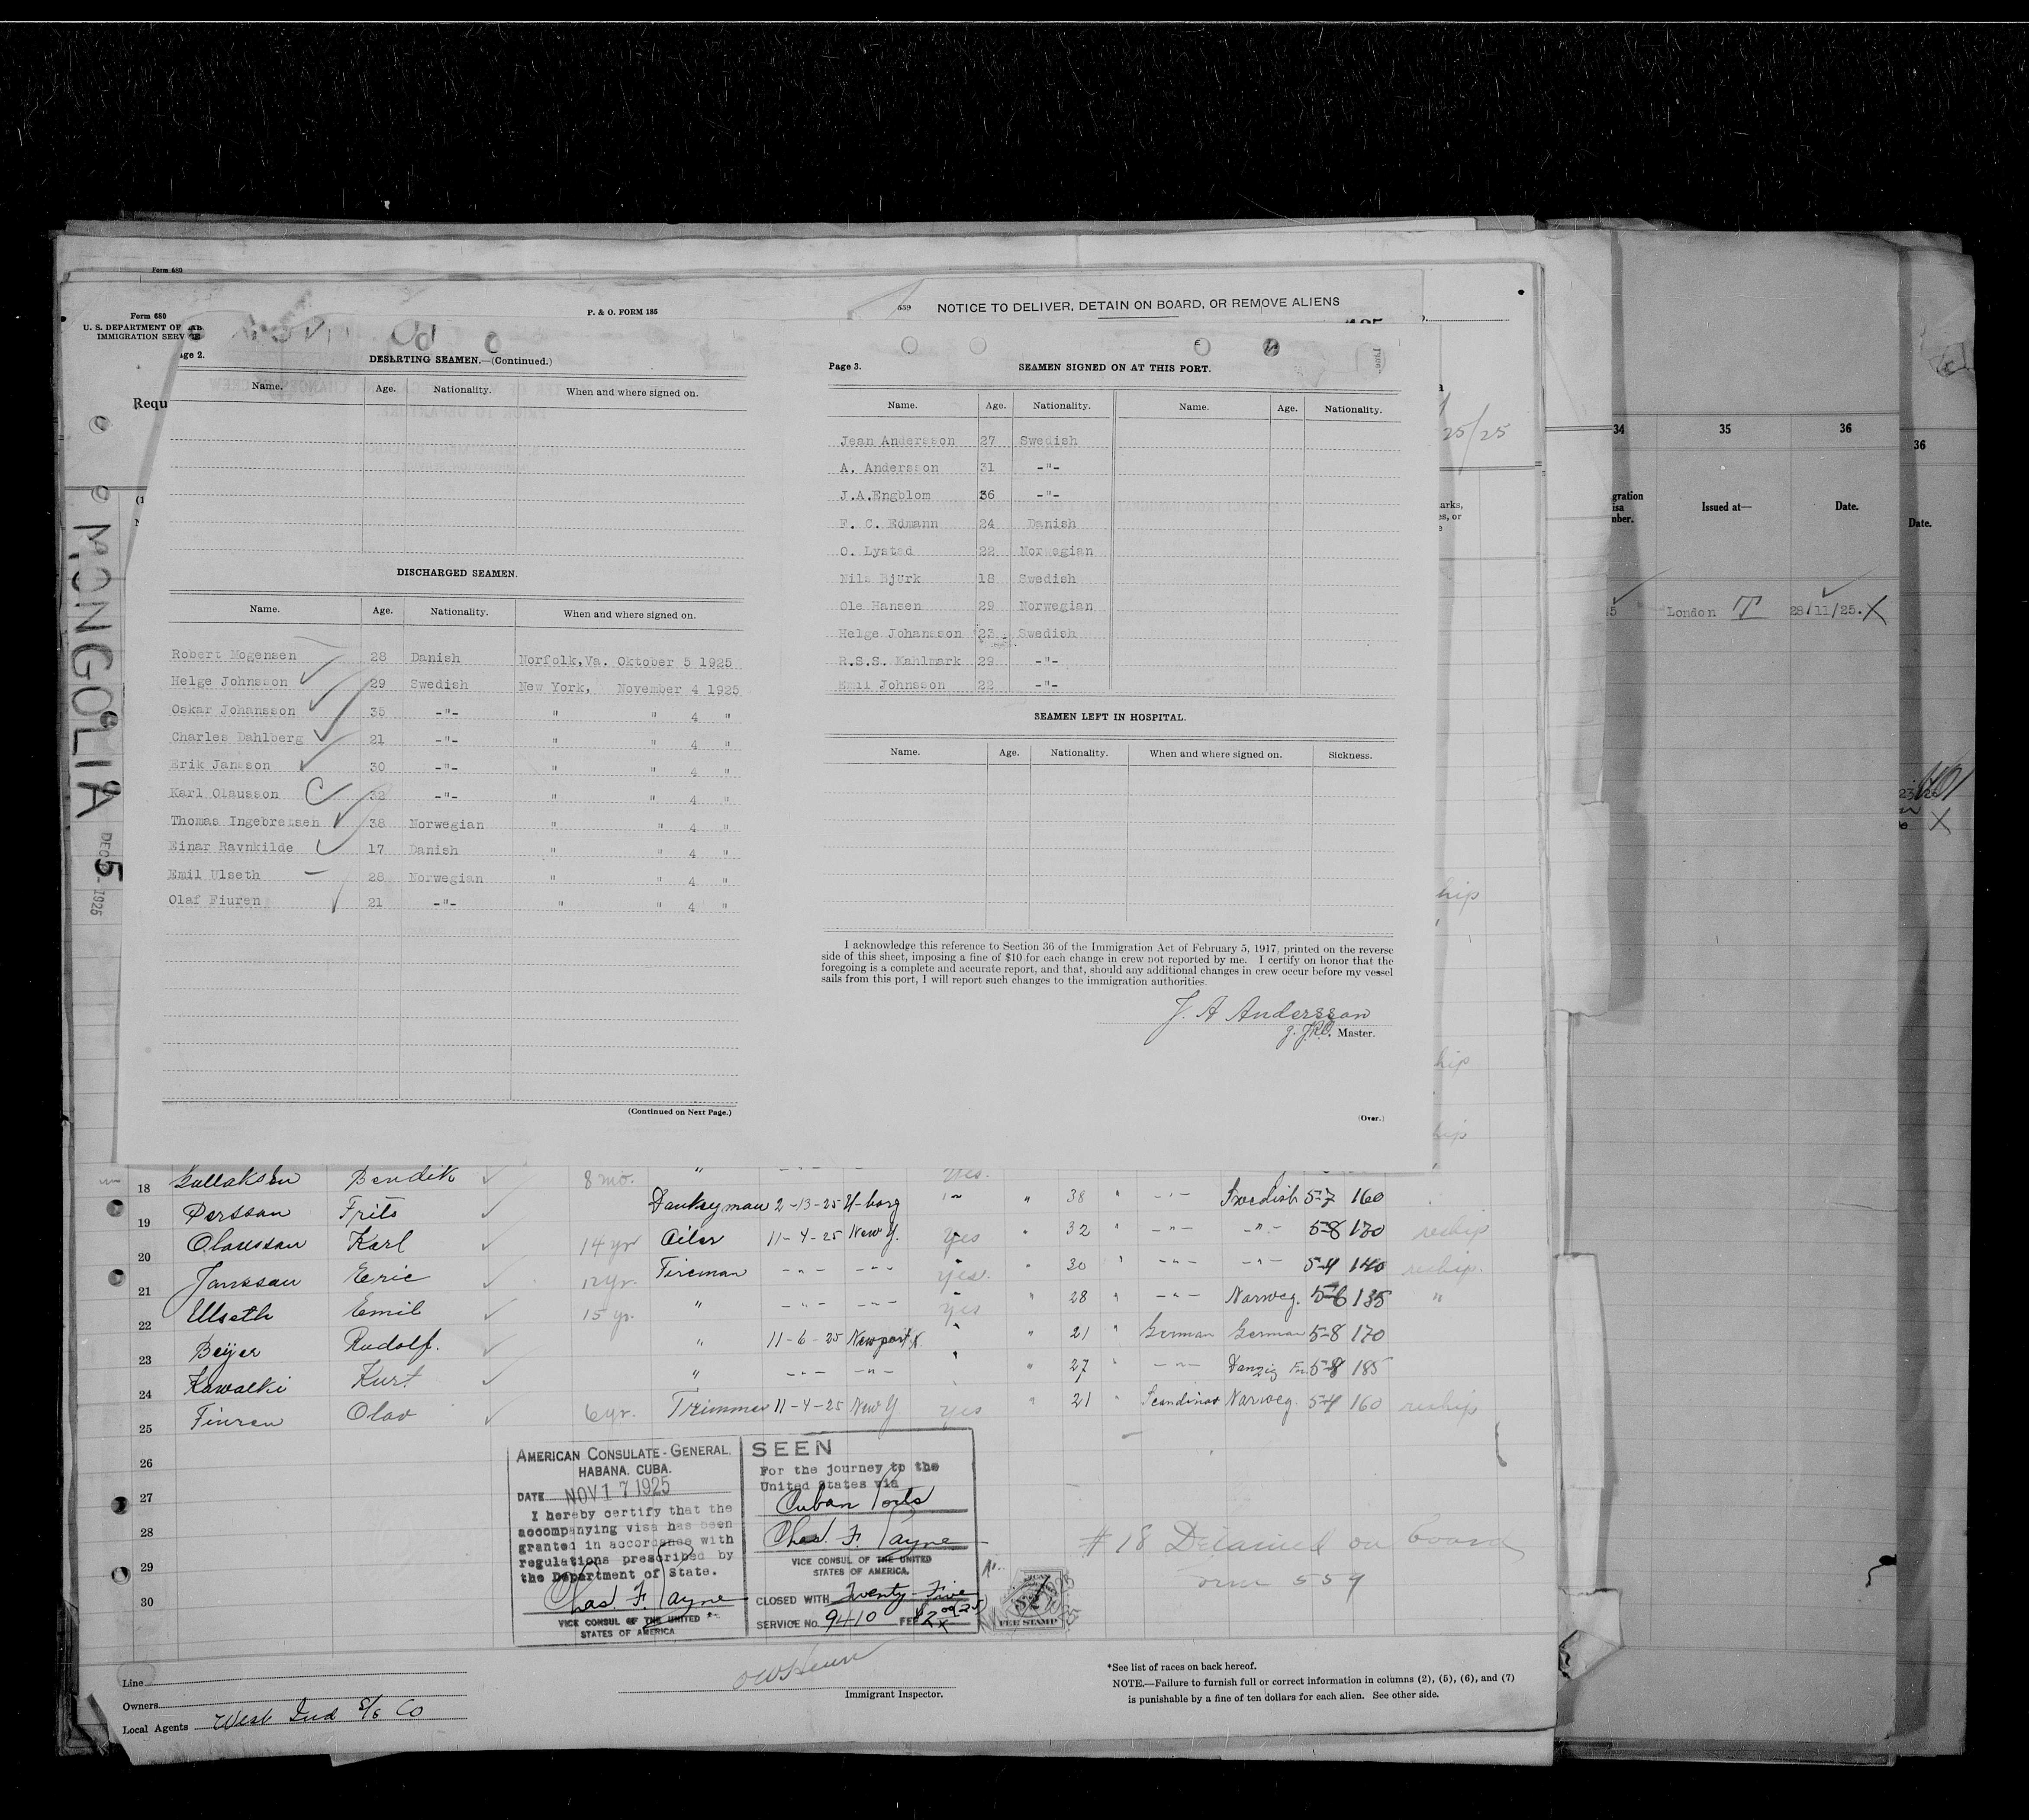 Form 680
Form 680
U. S. DEPARTMENT OF
IMMIGRATION
P. & O. FORM 185
559 NOTICE TO DELIVER, DETAIN ON BOARD, OR REMOVE ALIENS
Requ
MONGOLIA
DEC 5 1925
Page 2.
DESERTING SEAMEN.—(Continued.)
Name. Age. Nationality. When and where signed on.
DISCHARGED SEAMEN.
Name. Age. Nationality. When and where signed on.
Robert Mogensen 28 Danish Norfolk,Va. Oktober 5 1925
Helge Johnsson 29 Swedish New York, November 4 1925
Oskar Johansson 35 -"- " " 4 "
Charles Dahlberg 21 -"- " " 4 "
Erik Jansson 30 -"- " " 4 "
Karl Olausson C 32 -"- " " 4 "
Thomas Ingebretsen 38 Norwegian " " 4 "
Einar Ravnkilde 17 Danish " " 4 "
Emil Ulseth 28 Norwegian " " 4 "
Olaf Fiuren 21 -"- " " 4 "
(Continued on Next Page.)
Page 3.
SEAMEN SIGNED ON AT THIS PORT.
Name. Age. Nationality. Name. Age. Nationality.
Jean Andersson 27 Swedish
A. Andersson 31 -"-
J.A.Engblom 36 -"-
F. C. Edmann 24 Danish
O. Lystad 22 Norwegian
Nils Bjurk 18 Swedish
Ole Hansen 29 Norwegian
Helge Johansson 23 Swedish
R.S.S. Kahlmark 29 -"-
Emil Johnsson 22 -"-
SEAMEN LEFT IN HOSPITAL.
Name. Age. Nationality. When and where signed on. Sickness.
I acknowledge this reference to Section 36 of the Immigration Act of February 5, 1917, printed on the reverse
side of this sheet, imposing a fine of $10 for each change in crew not reported by me. I certify on honor that the
foregoing is a complete and accurate report, and that, should any additional changes in crew occur before my vessel
sails from this port, I will report such changes to the immigration authorities.
J. A Andersson
Master.
(Over.)
25/25
34 35 36
Issued at— Date.
36
Date.
London T 28/11/25. X
18 Gullaksen Bendik 8 mo. yes.
19 Persson Frits Donkeyman 2-13-25 H-borg " 38 " -"- Swedish 5-7 160
20 Olausson Karl 14 yr Oiler 11-4-25 New Y. yes " 32 " -"- -"- 5-8 130 reship
21 Janssan Eric 12 yr. Fireman -"- -"- yes. " 30 " -"- -"- 5-4 140 reship.
22 Ulseth Emil 15 yr. " -"- -"- yes " 28 " -"- Norweg. 5-6 135 "
23 Beijer Rudolf. " 11-6-25 Newport N. " " 21 " German German 5-8 170
24 Kawalki Kurt " -"- -"- " 27 " -"- Danzig 5-8 185
25 Finren Olav 6 yr. Trimmer 11-4-25 New Y yes " 21 " Scandinav Norweg. 5-4 160 reship
26
27
28
29
30
AMERICAN CONSULATE-GENERAL,
HABANA, CUBA.
DATE NOV 17 1925
I hereby certify that the
accompanying visa has been
granted in accordance with
regulations prescribed by
the Department of State.
Chas. F. Payne
VICE CONSUL OF THE UNITED
STATES OF AMERICA
SEEN
For the journey to the
United States via
Cuban Ports
Chas. F. Payne
VICE CONSUL OF THE UNITED
STATES OF AMERICA.
CLOSED WITH Twenty-Five
SERVICE No. 9410 FEE
FEE STAMP
#18 Detained on board
Form 559
Line
Owners
Local Agents West Ind S/S Co
Immigrant Inspector.
*See list of races on back hereof.
NOTE.—Failure to furnish full or correct information in columns (2), (5), (6), and (7)
is punishable by a fine of ten dollars for each alien. See other side.